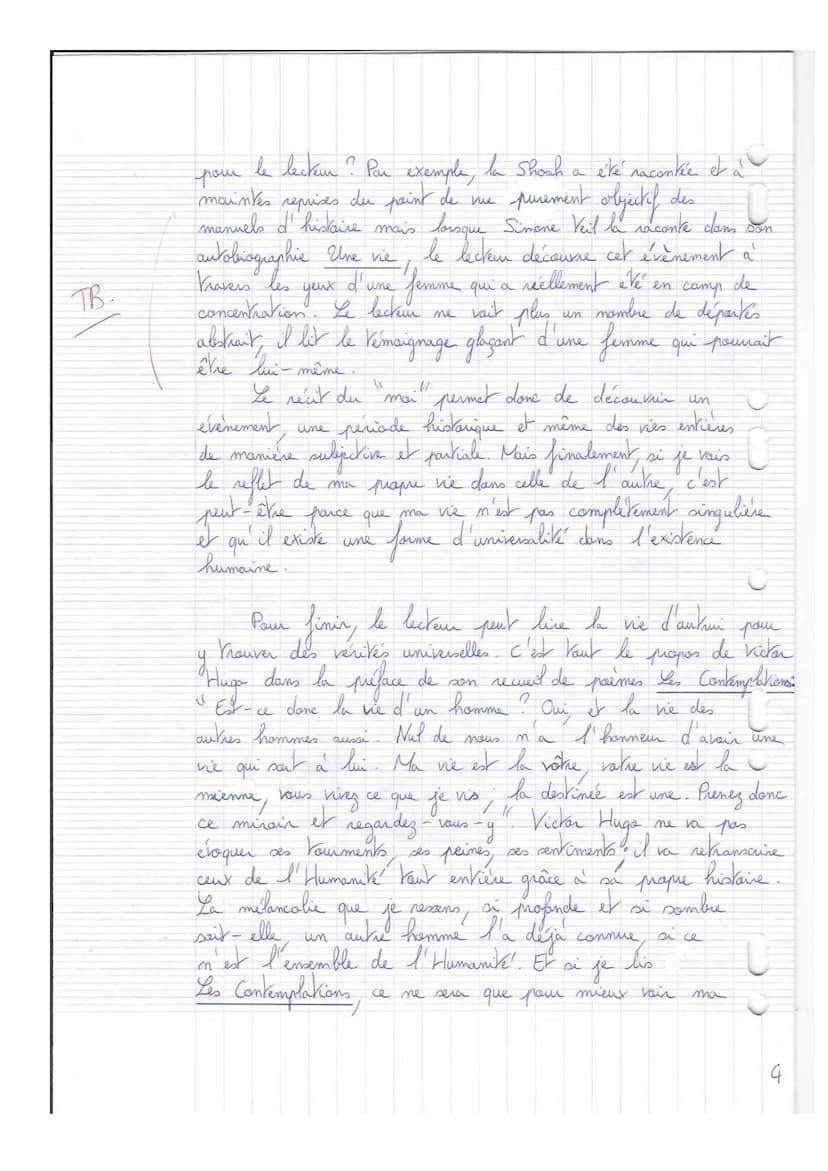 pour le lecteur ? Par exemple, la Shoah a été racontée et à
maintes reprises du point de vue purement objectif des
manuels d'histoire mais lorsque Simone Veil la raconte dans son
autobiographie Une vie, le lecteur découvre cet évènement à
travers les yeux d'une femme qui a réellement été en camp de
TB.
concentration. Le lecteur ne voit plus un nombre de déportés
abstrait, il lit le témoignage glaçant d'une femme qui pourrait
être lui-même.
Le récit du "moi" permet donc de découvrir un
évènement, une période historique et même des vies entières
de manière subjective et partiale. Mais finalement, si je vois
le reflet de ma propre vie dans celle de l'autre, c'est
peut-être parce que ma vie n'est pas complètement singulière
et qu'il existe une forme d'universalité dans l'existence
humaine.
Pour finir, le lecteur peut lire la vie d'autrui pour
y trouver des vérités universelles. C'est tout le propos de Victor
Hugo dans la préface de son recueil de poèmes Les Contemplations:
"Est-ce donc la vie d'un homme ? Oui, et la vie des
autres hommes aussi. Nul de nous n'a l'honneur d'avoir une
vie qui soit à lui. Ma vie est la vôtre, votre vie est la
mienne, vous vivez ce que je vis ; la destinée est une. Prenez donc
ce miroir et regardez-vous-y". Victor Hugo ne va pas
évoquer ses tourments, ses peines, ses sentiments : il va retranscrire
ceux de l'Humanité tout entière grâce à sa propre histoire.
La mélancolie que je ressens, si profonde et si sombre
soit-elle, un autre homme l'a déjà connue, si ce
n'est l'ensemble de l'Humanité. Et si je lis
Les Contemplations, ce ne sera que pour mieux voir ma
4